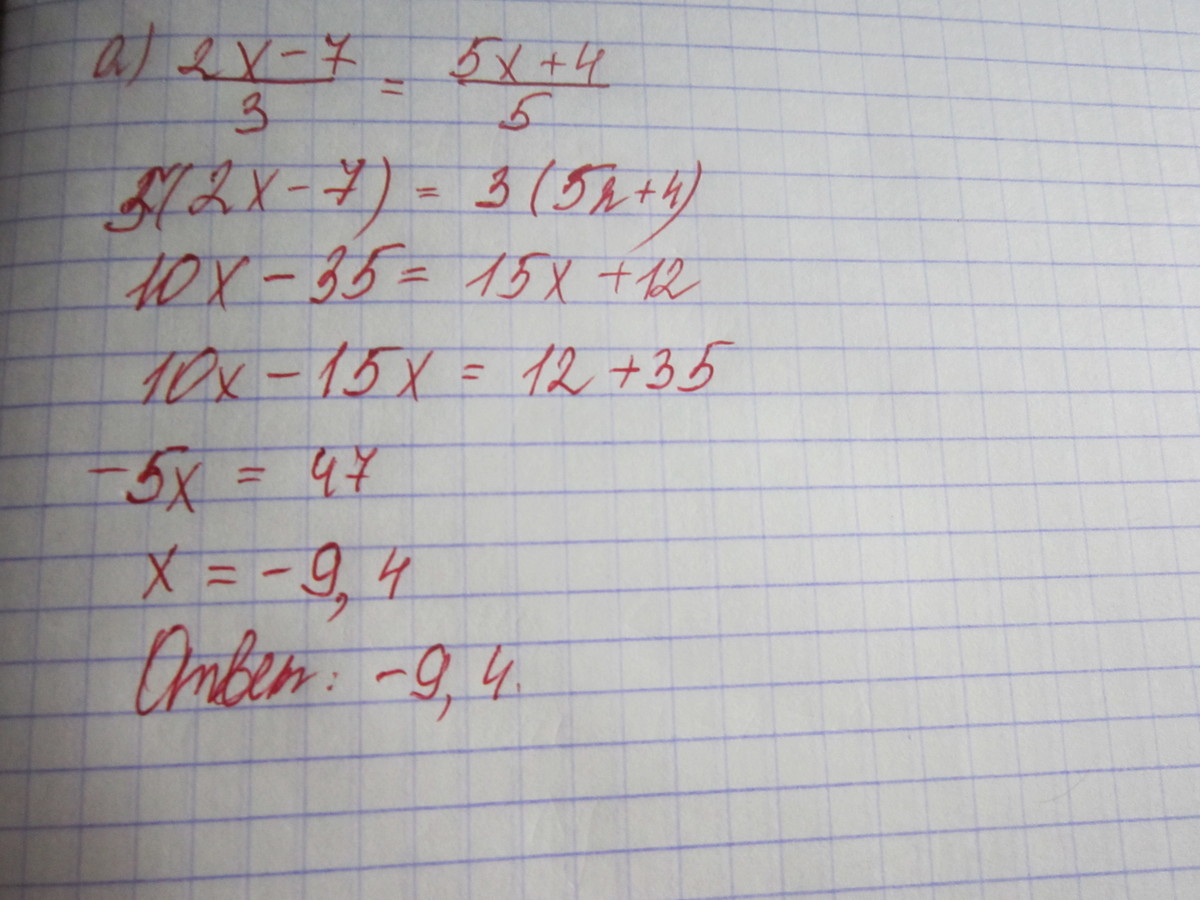 а) 2x-7/3 = 5x+4/5
5(2x-7) = 3(5x+4)
10x-35 = 15x+12
10x-15x = 12+35
-5x = 47
x = -9,4
Ответ: -9,4.